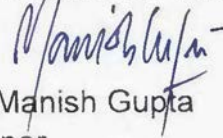 Manish Gupta
Manish Gupta